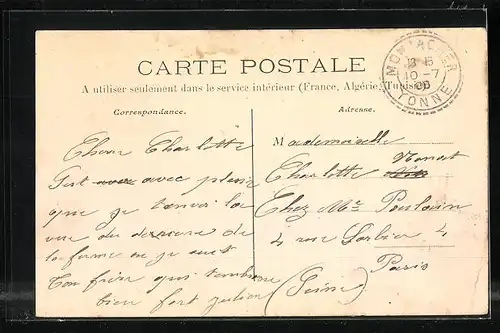 CARTE POSTALE
A utiliser seulement dans le service intérieur (France, Algérie, Tunisie)
Correspondance.
Adresse.
MONTACHER
10 -7
YONNE
Chère Charlotte
avec plaisir
que je t'envoi la
vue du derriere de
la ferme ou je suit
Ton frère qui t'embrasse
bien fort Julien
Mademoiselle
Charlotte
Chez Mr Poulain
4 rue Sorbier 4
Paris
(Seine)